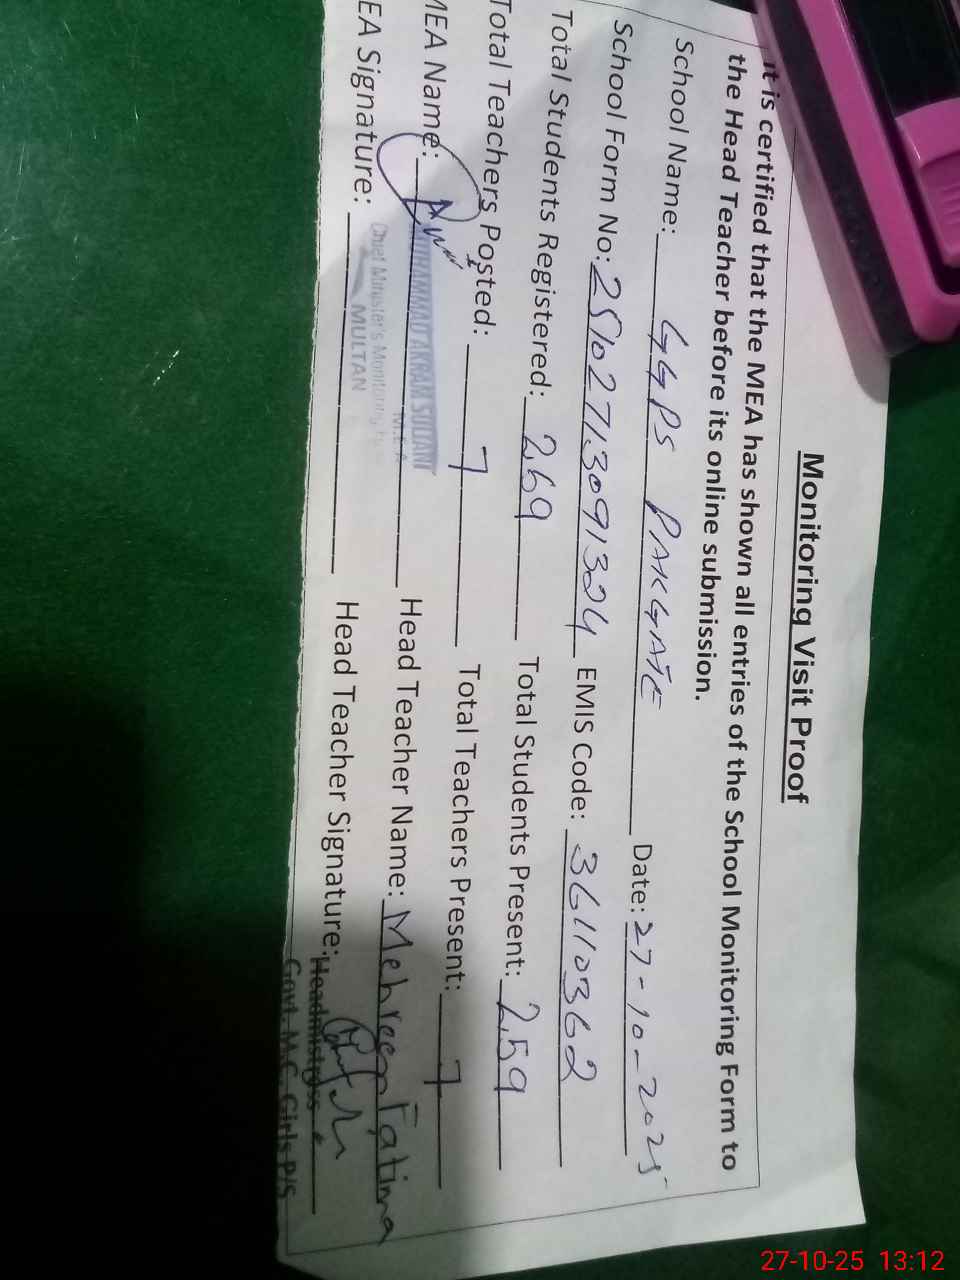 Monitoring Visit Proof
It is certified that the MEA has shown all entries of the School Monitoring Form to
the Head Teacher before its online submission.
School Name: GGPS PAKGATE Date: 27-10-2025
School Form No: 25102713091324 EMIS Code: 36110362
Total Students Registered: 269 Total Students Present: 259
Total Teachers Posted: 7 Total Teachers Present: 7
MEA Name: MUHAMMAD AKRAM Head Teacher Name: Mehreen Fatima
M.E.A
EA Signature: Chief Minister's Monitoring Head Teacher Signature: Headmistress
MULTAN
Govt. M.C. Girls P/S
27-10-25 13:12